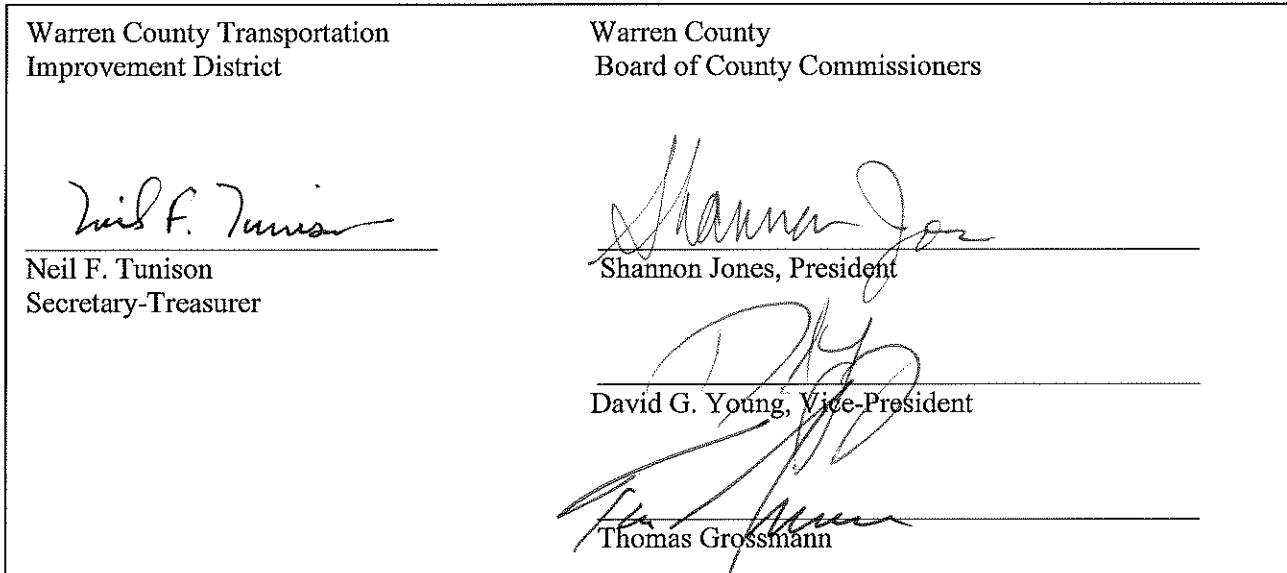 Warren County Transportation
Improvement District
Neil F. Tunison
Neil F. Tunison
Secretary-Treasurer
Warren County
Board of County Commissioners
Shannon Jon
Shannon Jones, President
David G. Young, Vice-President
Thomas Grossmann